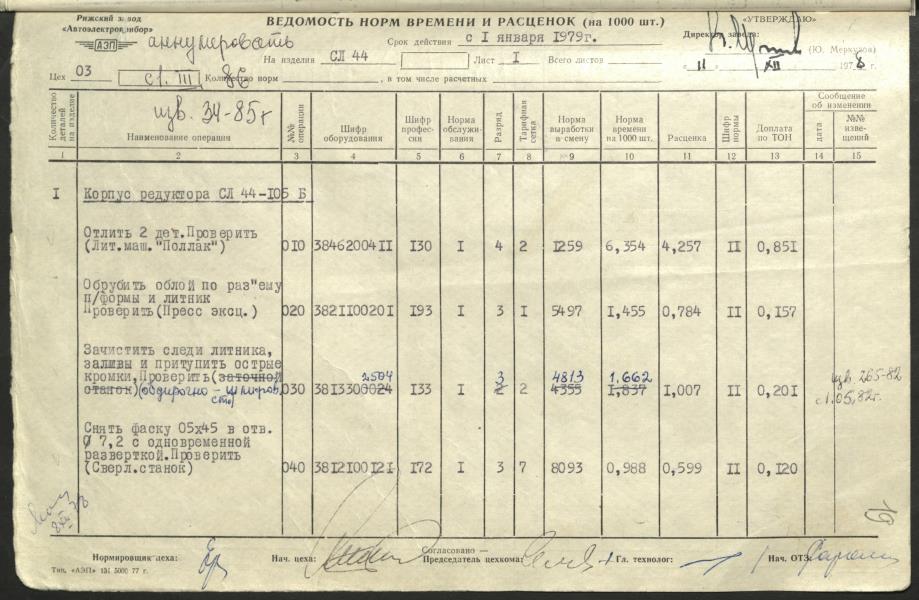 Рижский завод
«Автоэлектроприбор»
АЭП
ВЕДОМОСТЬ НОРМ ВРЕМЕНИ И РАСЦЕНОК (на 1000 шт.)
«УТВЕРЖДАЮ»
аннулировать
Срок действия с I января 1979г.
Директор завода:
(Ю. Меркулов)
На изделия СЛ 44 Лист I Всего листов
II XII 1978 г.
Цех 03 с1.III Количество норм , в том числе расчетных
изв. 34-85г
Количество деталей на изделие
Наименование операции
№№ операции
Шифр оборудования
Шифр профессии
Норма обслуживания
Разряд
Тарифная сетка
Норма выработки в смену
Норма времени на 1000 шт.
Расценка
Шифр нормы
Доплата по ТОН
Сообщение об изменении
дата
№№ извещений
1 2 3 4 5 6 7 8 9 10 11 12 13 14 15
I Корпус редуктора СЛ 44-I05 Б
Отлить 2 дет.Проверить
(Лит.маш."Поллак") 0I0 38462004II I30 I 4 2 I259 6,354 4,257 II 0,85I
Обрубить облой по раз"ему
п/формы и литник
Проверить(Пресс эксц.) 020 382II0020I I93 I 3 I 5497 I,455 0,784 II 0,I57
Зачистить следи литника,
заливы и притупить острые 2504 3 4813 1,662
кромки,Проверить(заточной изв. 265-82
станок)(обдирочно-шлифов. 030 38I3300024 I33 I 2 2 4355 I,837 I,007 II 0,20I с 1.05.82г.
ст)
Снять фаску 05х45 в отв.
Ø 7,2 с одновременной
разверткой.Проверить
(Сверл.станок) 040 38I2I00I2I I72 I 3 7 8093 0,988 0,599 II 0,I20
Согласовано —
Нормировщик цеха: Нач. цеха: Председатель цехкома: Гл. технолог: Нач. ОТЗ:
Тип. «АЭП» 131 5000 77 г.